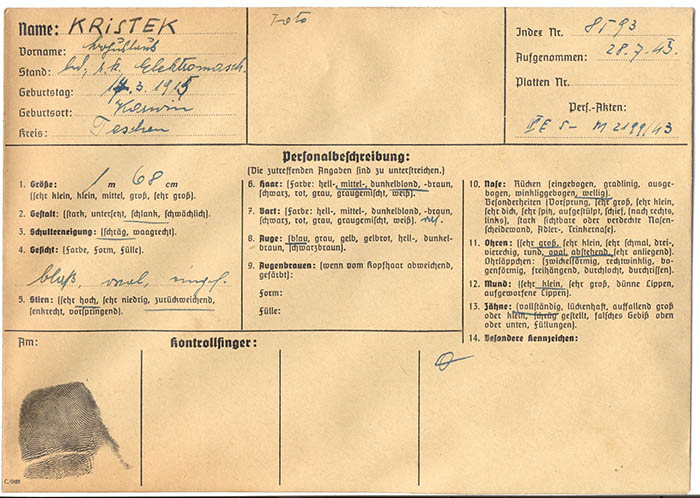 Name: KRISTEK
Vorname: Bohuslaus
Stand: led, r.k. Elektromasch.
Geburtstag: 14.3.1915
Geburtsort: Karwin
Kreis: Teschen
Foto
Index Nr. 8593
Aufgenommen: 28.7.43.
Platten Nr.
Pers.-Akten:
II E 5 - M 2199/43
Personalbeschreibung:
(Die zutreffenden Angaben sind zu unterstreichen.)
1. Größe: 1 m 68 cm
(sehr klein, klein, mittel, groß, sehr groß).
2. Gestalt: (stark, untersetzt, schlank, schwächlich).
3. Schulterneigung: (schräg, waagrecht).
4. Gesicht: (Farbe, Form, Fülle).
blaß, oval,
5. Stirn: (sehr hoch, sehr niedrig, zurückweichend,
senkrecht, vorspringend).
6. Haar: (Farbe: hell-, mittel-, dunkelblond, -braun,
schwarz, rot, grau, graugemischt, weiß).
7. Bart: (Farbe: hell-, mittel-, dunkelblond, -braun,
schwarz, rot, grau, graugemischt, weiß).
8. Auge: (blau, grau, gelb, gelbrot, hell-, dunkel-
braun, schwarzbraun).
9. Augenbrauen: (wenn vom Kopfhaar abweichend,
gefärbt):
Form:
Fülle:
10. Nase: Rücken (eingebogen, gradlinig, ausge-
bogen, winkliggebogen, wellig).
Besonderheiten (Vorsprung, sehr groß, sehr klein,
sehr dick, sehr spitz, aufgestülpt, schief, (nach rechts,
links), stark sichtbare oder verdeckte Nasen-
scheidewand, Adler-, Trinkernase).
11. Ohren: (sehr groß, sehr klein, sehr schmal, drei-,
viereckig, rund, oval, abstehend, sehr anliegend).
Ohrläppchen: (zwickelförmig, rechtwinklig, bo-
genförmig, freihängend, durchlocht, durchrissen).
12. Mund: (sehr klein, sehr groß, dünne Lippen,
aufgeworfene Lippen).
13. Zähne: (vollständig, lückenhaft, auffallend groß
oder klein, schräg gestellt, falsches Gebiß oben
oder unten, Füllungen).
14. Besondere Kennzeichen:
Am:
Kontrollfinger: